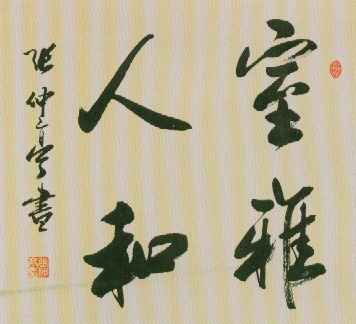 室雅
人和
张仲亭書